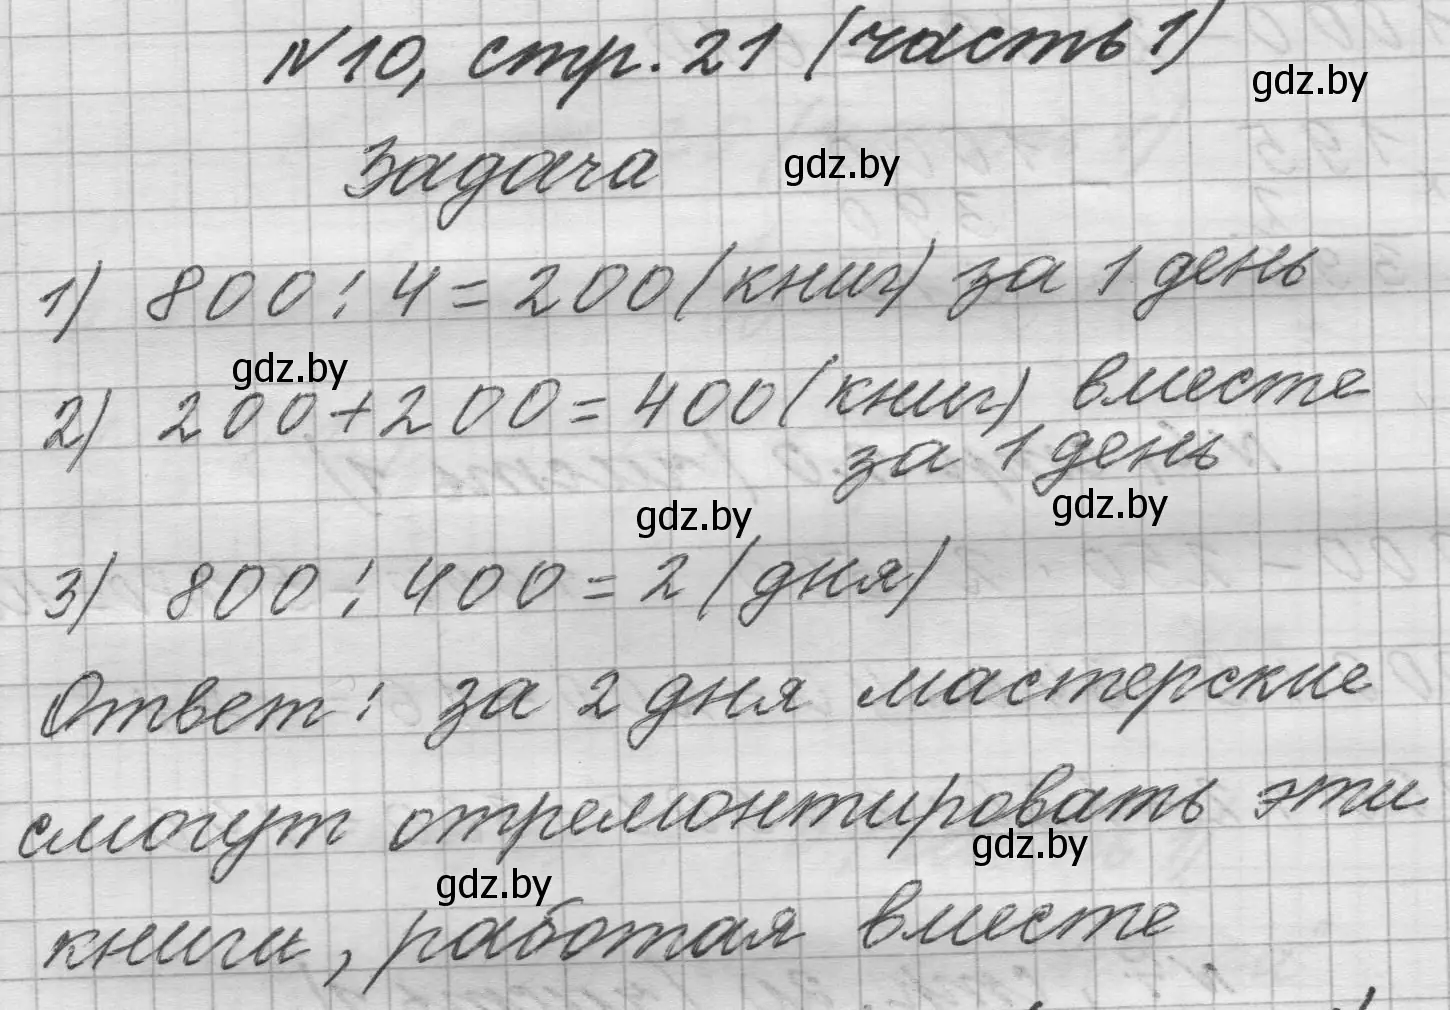 №10, стр. 21 (часть 1)
gdz.by
Задача
gdz.by
1) 800 : 4 = 200 (книг) за 1 день
gdz.by
2) 200 + 200 = 400 (книг) вместе
за 1 день
gdz.by
gdz.by
3) 800 : 400 = 2 (дня)
Ответ: за 2 дня мастерские
смогут отремонтировать эти
gdz.by
gdz.by
книги, работая вместе